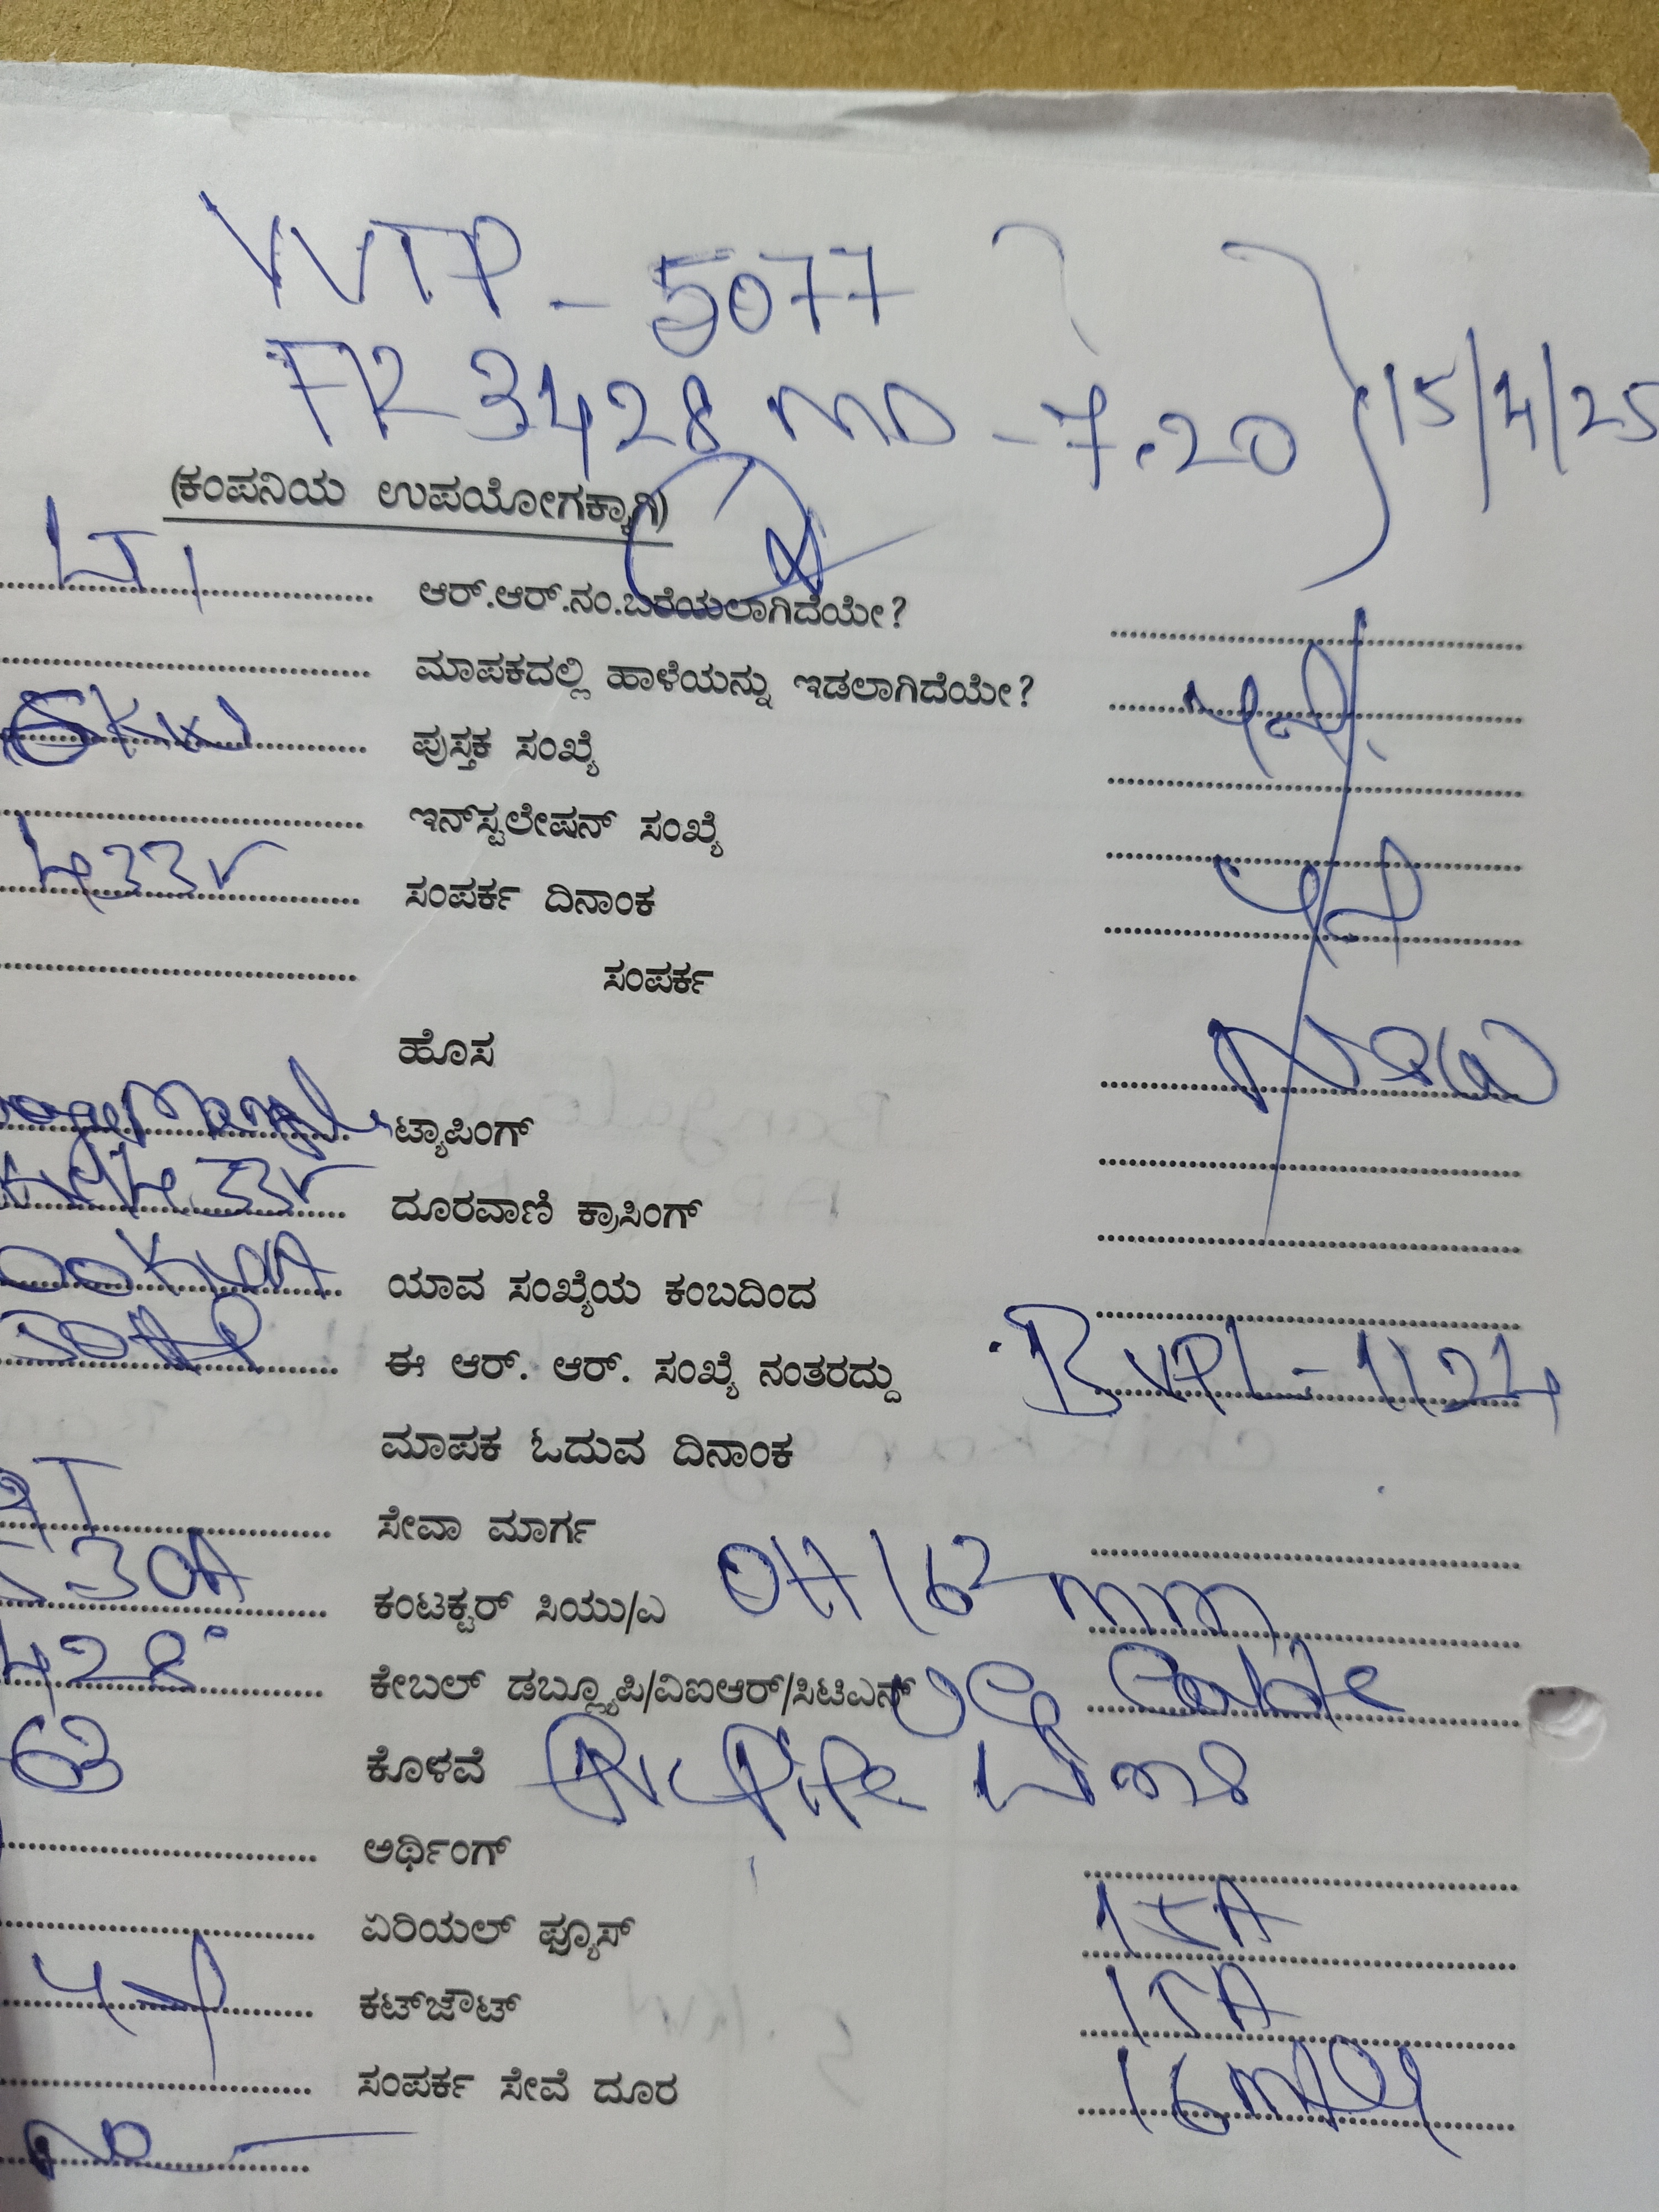 VVTP - 5077
FR 3428 MD - 7.20 } 15/4/25
(ಕಂಪನಿಯ ಉಪಯೋಗಕ್ಕಾಗಿ)
LT ಆರ್.ಆರ್.ನಂ.ಬರೆಯಲಾಗಿದೆಯೇ?
ಮಾಪಕದಲ್ಲಿ ಹಾಳೆಯನ್ನು ಇಡಲಾಗಿದೆಯೇ?
KW ಪುಸ್ತಕ ಸಂಖ್ಯೆ
ಇನ್‌ಸ್ಟಲೇಷನ್ ಸಂಖ್ಯೆ
433V ಸಂಪರ್ಕ ದಿನಾಂಕ
ಸಂಪರ್ಕ
ಹೊಸ New
ಟ್ಯಾಪಿಂಗ್
433V ದೂರವಾಣಿ ಕ್ರಾಸಿಂಗ್
ಯಾವ ಸಂಖ್ಯೆಯ ಕಂಬದಿಂದ
ಈ ಆರ್. ಆರ್. ಸಂಖ್ಯೆ ನಂತರದ್ದು BVPL-1124
ಮಾಪಕ ಓದುವ ದಿನಾಂಕ
ಸೇವಾ ಮಾರ್ಗ
30A ಕಂಟಕ್ಟರ್ ಸಿಯು/ಎ OH 16² mm
428 ಕೇಬಲ್ ಡಬ್ಲ್ಯೂಪಿ/ವಿಐಆರ್/ಸಿಟಿಎಸ್ UG Cable
63 ಕೊಳವೆ PVC Pipe
ಅರ್ಥಿಂಗ್
ಏರಿಯಲ್ ಫ್ಯೂಸ್ 15A
ಕಟ್‌ಔಟ್ 15A
ಸಂಪರ್ಕ ಸೇವೆ ದೂರ